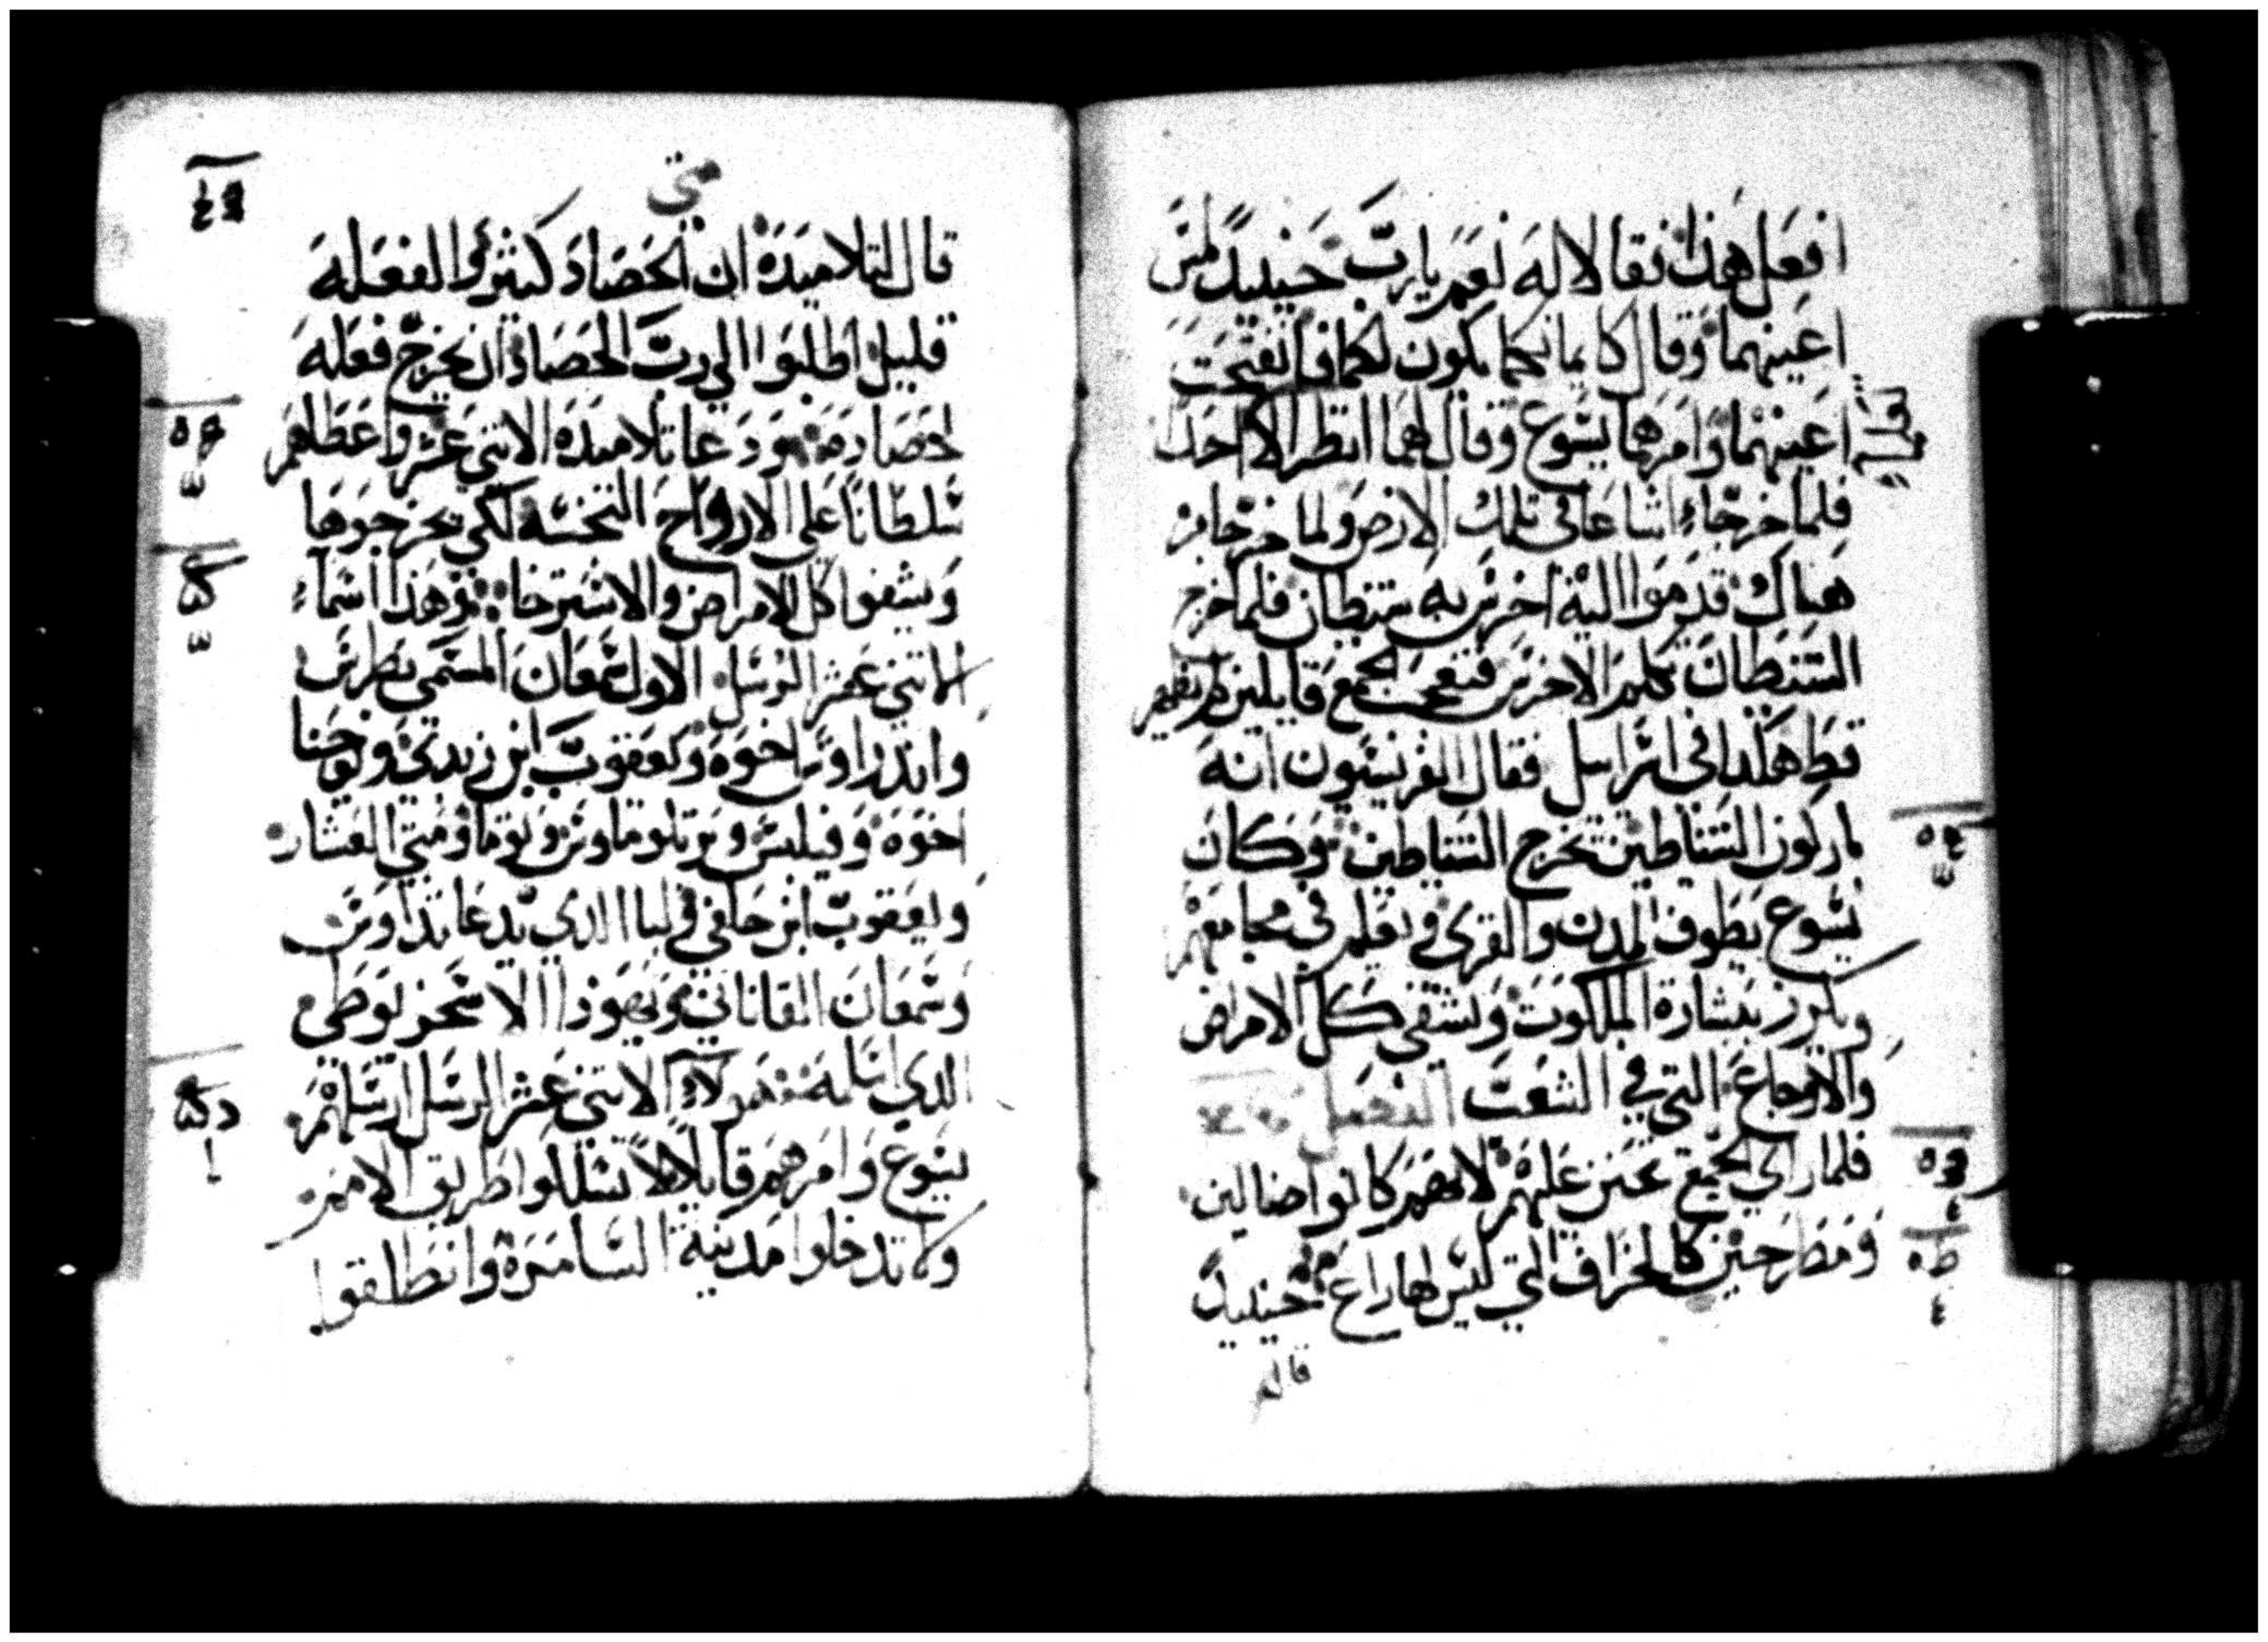 افعل هذا فقالا له نعم يارب حينيدٍ لمس
اعينهما وقال كايمانكما يكون لكما فانفتحت
اعينهما وامرهما يسوع وقال لهما انظرا لا احدا
فلما خرجا اشاعا في تلك الارض ولما خرجا من
هناك قدموا اليه اخرس به شيطان فلما اخرج
الشيطان تكلم الاخرس فتعجب الجمع قايلين لم يظهر
قط هكذا في اسراييل فقال الفريسيون انه
باركون الشياطين يخرج الشياطين وكان
يسوع يطوف المدن والقرى ويعلم في مجامعهم
ويكرز ببشارة الملكوت ويشفي كل الامراض
والاوجاع التي في الشعب الفصل
فلما راي الجمع تحنن عليهم لانهم كانوا ضالين
ومطرحين كالخراف التي ليس لها راع حينيدٍ
قال
متى
قال لتلاميده ان الحصاد كثير والفعله
قليل اطلبوا الي رب الحصاد ان يخرج فعله
لحصاده ودعا تلاميده الاتني عشر واعطاهم
سلطانا على الارواح النجسه لكي يخرجوها
ويشفوا كل الامراض والاسترخا وهذا اسماء
الاتني عشر الرسل الاول سمعان المسمى بطرس
واندراوس اخوه ويعقوب ابن زبدي ويوحنا
اخوه وفيلبس وبرتلوماوس وتوما ومتي العشار
ويعقوب ابن حلفي ولبا الدي يدعا تداوس
وسمعان القاناني ويهودا الاسخريوطي
الدي اسلمه هولاء الاتني عشر الرسل ارسلهم
يسوع وامرهم قايلا لا تسلكوا طريق الامم
ولا تدخلوا مدينة السامرة وانطلقوا